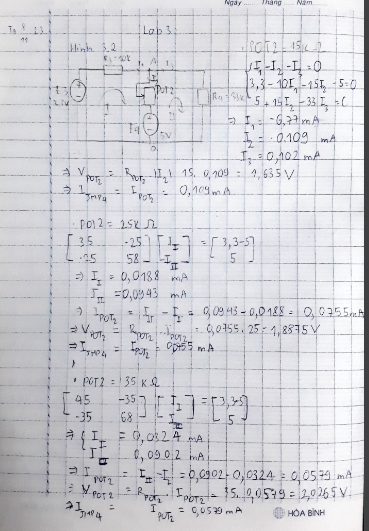 Ngày Tháng Năm
Lab 3:
Hình 3.2
POT2 = 15 kΩ
I₁ - I₂ - I₃ = 0
3,3 - 10I₁ - 15I₂ - 5 = 0
5 + 15I₂ - 33I₃ = 0
POT2
5V
⇒ I₁ = -6,77 mA
I₂ = -0.109 mA
I₃ = 0,102 mA
⇒ V_POT2 = R_POT2 . |I₂| 15. 0,109 = 1,635 V
⇒ I_JMP4 = I_POT2 = 0,109 mA
. POT2 = 25k Ω
[35 -25] [I_I] = [3,3-5]
[-25 58] [I_II] [5]
⇒ I_I = 0,0188 mA
I_II = 0,0943 mA
⇒ I_POT2 = I_II - I_I = 0,0943 - 0,0188 = 0,0755 mA
⇒ V_POT2 = R_POT2 . I_POT2 = 0,0755. 25 = 1,8875 V
⇒ I_JMP4 = I_POT2 = 0,0755 mA
. POT2 = 35 KΩ
[45 -35] [I_I] = [3,3-5]
[-35 68] [I_II] [5]
⇒ { I_I = 0,0324 mA
I_II 0,0902 mA
⇒ I_POT2 = I_II - I_I = 0,0902 - 0,0324 = 0,0579 mA
⇒ V_POT2 = R_POT2 . I_POT2 = 35. 0,0579 = 2,0265 V
⇒ I_JMP4 = I_POT2 = 0,0579 mA
HÒA BÌNH